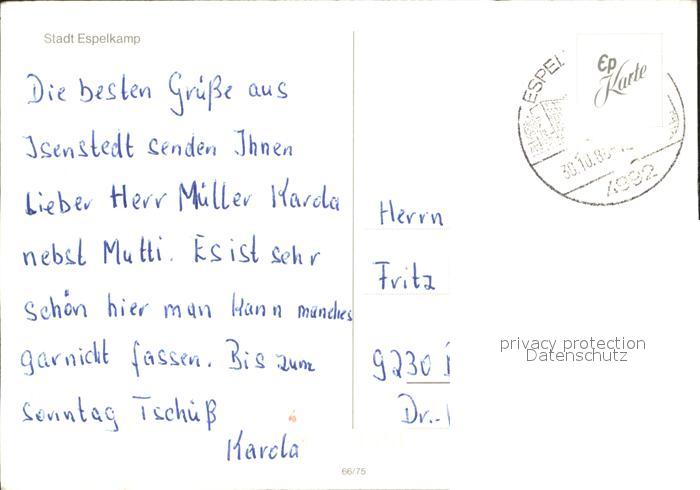 Stadt Espelkamp
Die besten Grüße aus
Isenstedt senden Ihnen
Lieber Herr Müller Karola
nebst Mutti. Es ist sehr
schön hier man kann manches
garnicht fassen. Bis zum
Sonntag Tschüß
Karola
66/75
ESPEL
30.10.86
4992
Ep
Karte
Herrn
Fritz
9230
Dr.-
privacy protection
Datenschutz